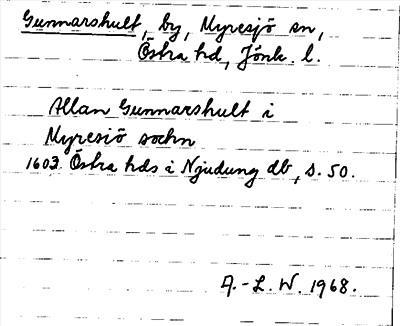 Gunnarshult, by, Myresjö sn,
Östra hd, Jönk. l.
Allan Gunnarshult i
Myresiö sochn
1603 Östra hds i Njudung db, s. 50.
A.-L. W. 1968.